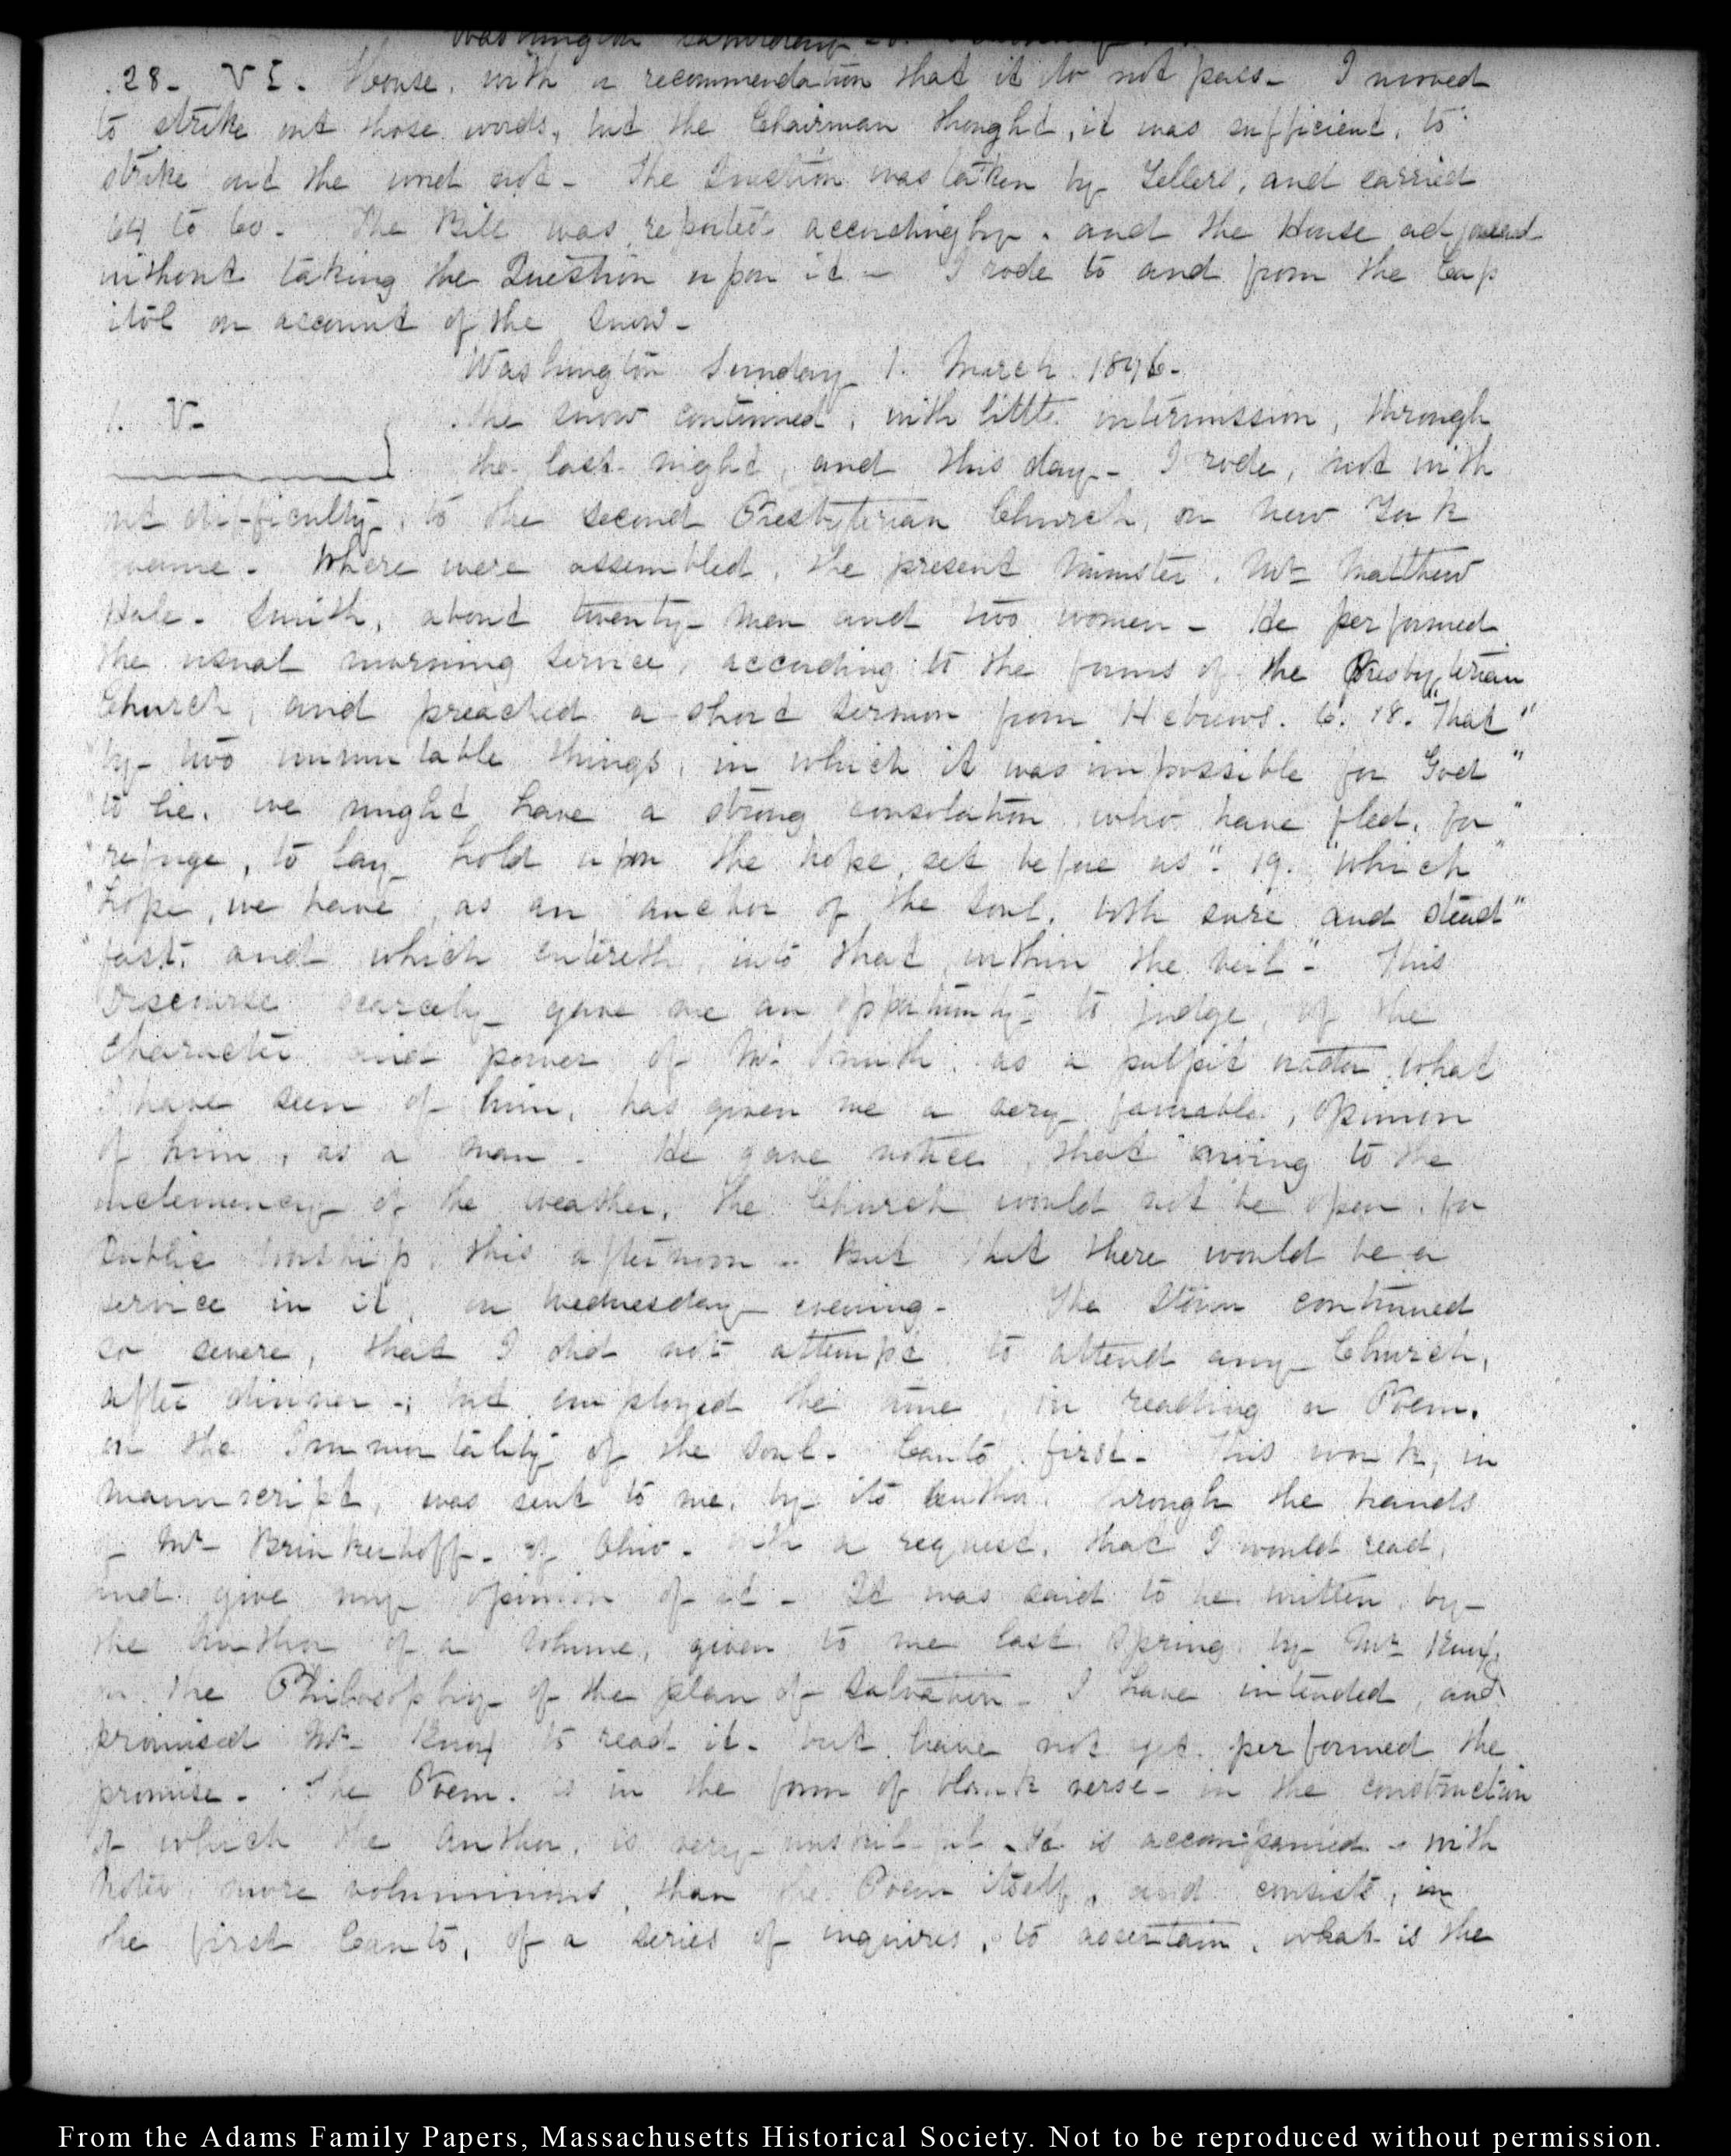 Washington Saturday
28. VI. House, with a recommendation that it do not pass. I moved
to strike out those words, but the Chairman thought, it was sufficient, to
strike out the word not. The Question was taken by Tellers, and carried
64 to 60. The Bill was reported accordingly, and the House adjourned
without taking the Question upon it. I rode to and from the Cap
itol on account of the Snow.
Washington Sunday 1. March 1846.
1. V. The snow continued, with little intermission, through
the last night, and this day. I rode, not with
out difficulty, to the second Presbyterian Church, on New York
avenue. Where were assembled, the present Minister, Mr. Matthew
Hale Smith, about twenty men and two women. He performed
the usual morning service, according to the forms of the Presbyterian
Church, and preached a short sermon from Hebrews. 6. 18. "That"
"by two immutable things, in which it was impossible for God"
"to lie, we might have a strong consolation who have fled, for"
"refuge, to lay hold upon the hope set before us". 19. "Which"
"hope, we have, as an anchor of the Soul, both sure and stead"
"fast, and which entereth, into that within the veil". This
Discourse scarcely gave me an opportunity to judge, of the
character and power of Mr. Smith, as a pulpit orator. What
I have seen of him, has given me a very favourable, opinion
of him, as a man. He gave notice, that owing to the
inclemency of the weather, the Church would not be open, for
Public worship, this afternoon. But that there would be a
service in it, on Wednesday evening. The Storm continued
so severe, that I did not attempt to attend any Church,
after dinner; but employed the time, in reading a Poem,
on the Immortality of the Soul. Canto first. This work, in
manuscript, was sent to me, by its Author, through the hands
of Mr. Brinkerhoff, of Ohio, with a request, that I would read,
and give my opinion of it. It was said to be written, by
the Author of a volume, given to me last Spring by Mr.
on the Philosophy of the plan of Salvation. I have intended, and
promised Mr. to read it, but have not yet performed the
promise. The Poem, is in the form of blank verse, in the construction
of which the Author, is very unskilful. It is accompanied, with
Notes, more voluminous, than the Poem itself, and consists, in
the first Canto, of a series of inquiries, to ascertain, what is the
From the Adams Family Papers, Massachusetts Historical Society. Not to be reproduced without permission.